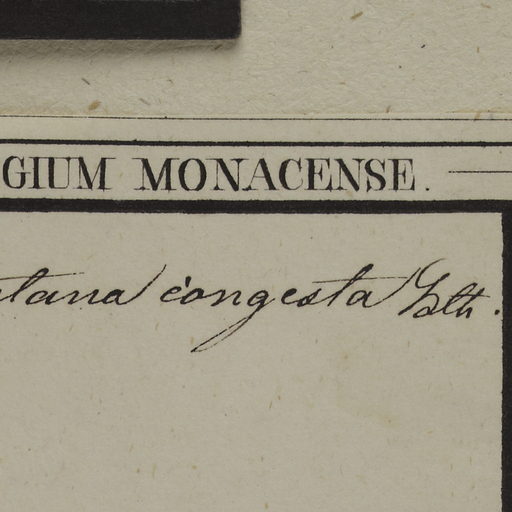 GIUM MONACENSE.
tana congesta